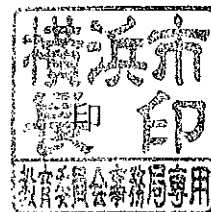 横浜市
長印印
教育委員会事務局専用